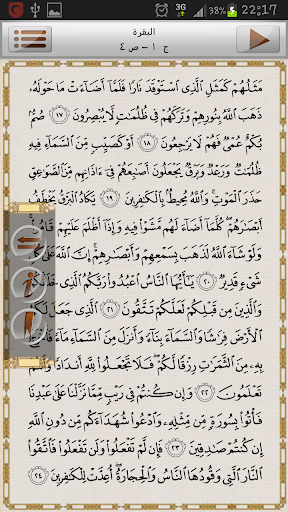 3G 39% 22:17
البقرة
ج ١ - ص ٤
مَثَلُهُمْ كَمَثَلِ الَّذِي اسْتَوْقَدَ نَارًا فَلَمَّا أَضَاءَتْ مَا حَوْلَهُ
ذَهَبَ اللَّهُ بِنُورِهِمْ وَتَرَكَهُمْ فِي ظُلُمَاتٍ لَّا يُبْصِرُونَ ١٧ صُمٌّ
بُكْمٌ عُمْيٌ فَهُمْ لَا يَرْجِعُونَ ١٨ أَوْ كَصَيِّبٍ مِّنَ السَّمَاءِ فِيهِ
ظُلُمَاتٌ وَرَعْدٌ وَبَرْقٌ يَجْعَلُونَ أَصَابِعَهُمْ فِي آذَانِهِم مِّنَ الصَّوَاعِقِ
حَذَرَ الْمَوْتِ وَاللَّهُ مُحِيطٌ بِالْكَافِرِينَ ١٩ يَكَادُ الْبَرْقُ يَخْطَفُ
أَبْصَارَهُمْ كُلَّمَا أَضَاءَ لَهُم مَّشَوْا فِيهِ وَإِذَا أَظْلَمَ عَلَيْهِمْ قَامُوا
وَلَوْ شَاءَ اللَّهُ لَذَهَبَ بِسَمْعِهِمْ وَأَبْصَارِهِمْ إِنَّ اللَّهَ عَلَى كُلِّ
شَيْءٍ قَدِيرٌ ٢٠ يَا أَيُّهَا النَّاسُ اعْبُدُوا رَبَّكُمُ الَّذِي خَلَقَكُمْ
وَالَّذِينَ مِن قَبْلِكُمْ لَعَلَّكُمْ تَتَّقُونَ ٢١ الَّذِي جَعَلَ لَكُمُ
الْأَرْضَ فِرَاشًا وَالسَّمَاءَ بِنَاءً وَأَنزَلَ مِنَ السَّمَاءِ مَاءً فَأَخْرَجَ
بِهِ مِنَ الثَّمَرَاتِ رِزْقًا لَّكُمْ فَلَا تَجْعَلُوا لِلَّهِ أَندَادًا وَأَنتُمْ
تَعْلَمُونَ ٢٢ وَإِن كُنتُمْ فِي رَيْبٍ مِّمَّا نَزَّلْنَا عَلَى عَبْدِنَا
فَأْتُوا بِسُورَةٍ مِّن مِّثْلِهِ وَادْعُوا شُهَدَاءَكُم مِّن دُونِ اللَّهِ
إِن كُنتُمْ صَادِقِينَ ٢٣ فَإِن لَّمْ تَفْعَلُوا وَلَن تَفْعَلُوا فَاتَّقُوا
النَّارَ الَّتِي وَقُودُهَا النَّاسُ وَالْحِجَارَةُ أُعِدَّتْ لِلْكَافِرِينَ ٢٤